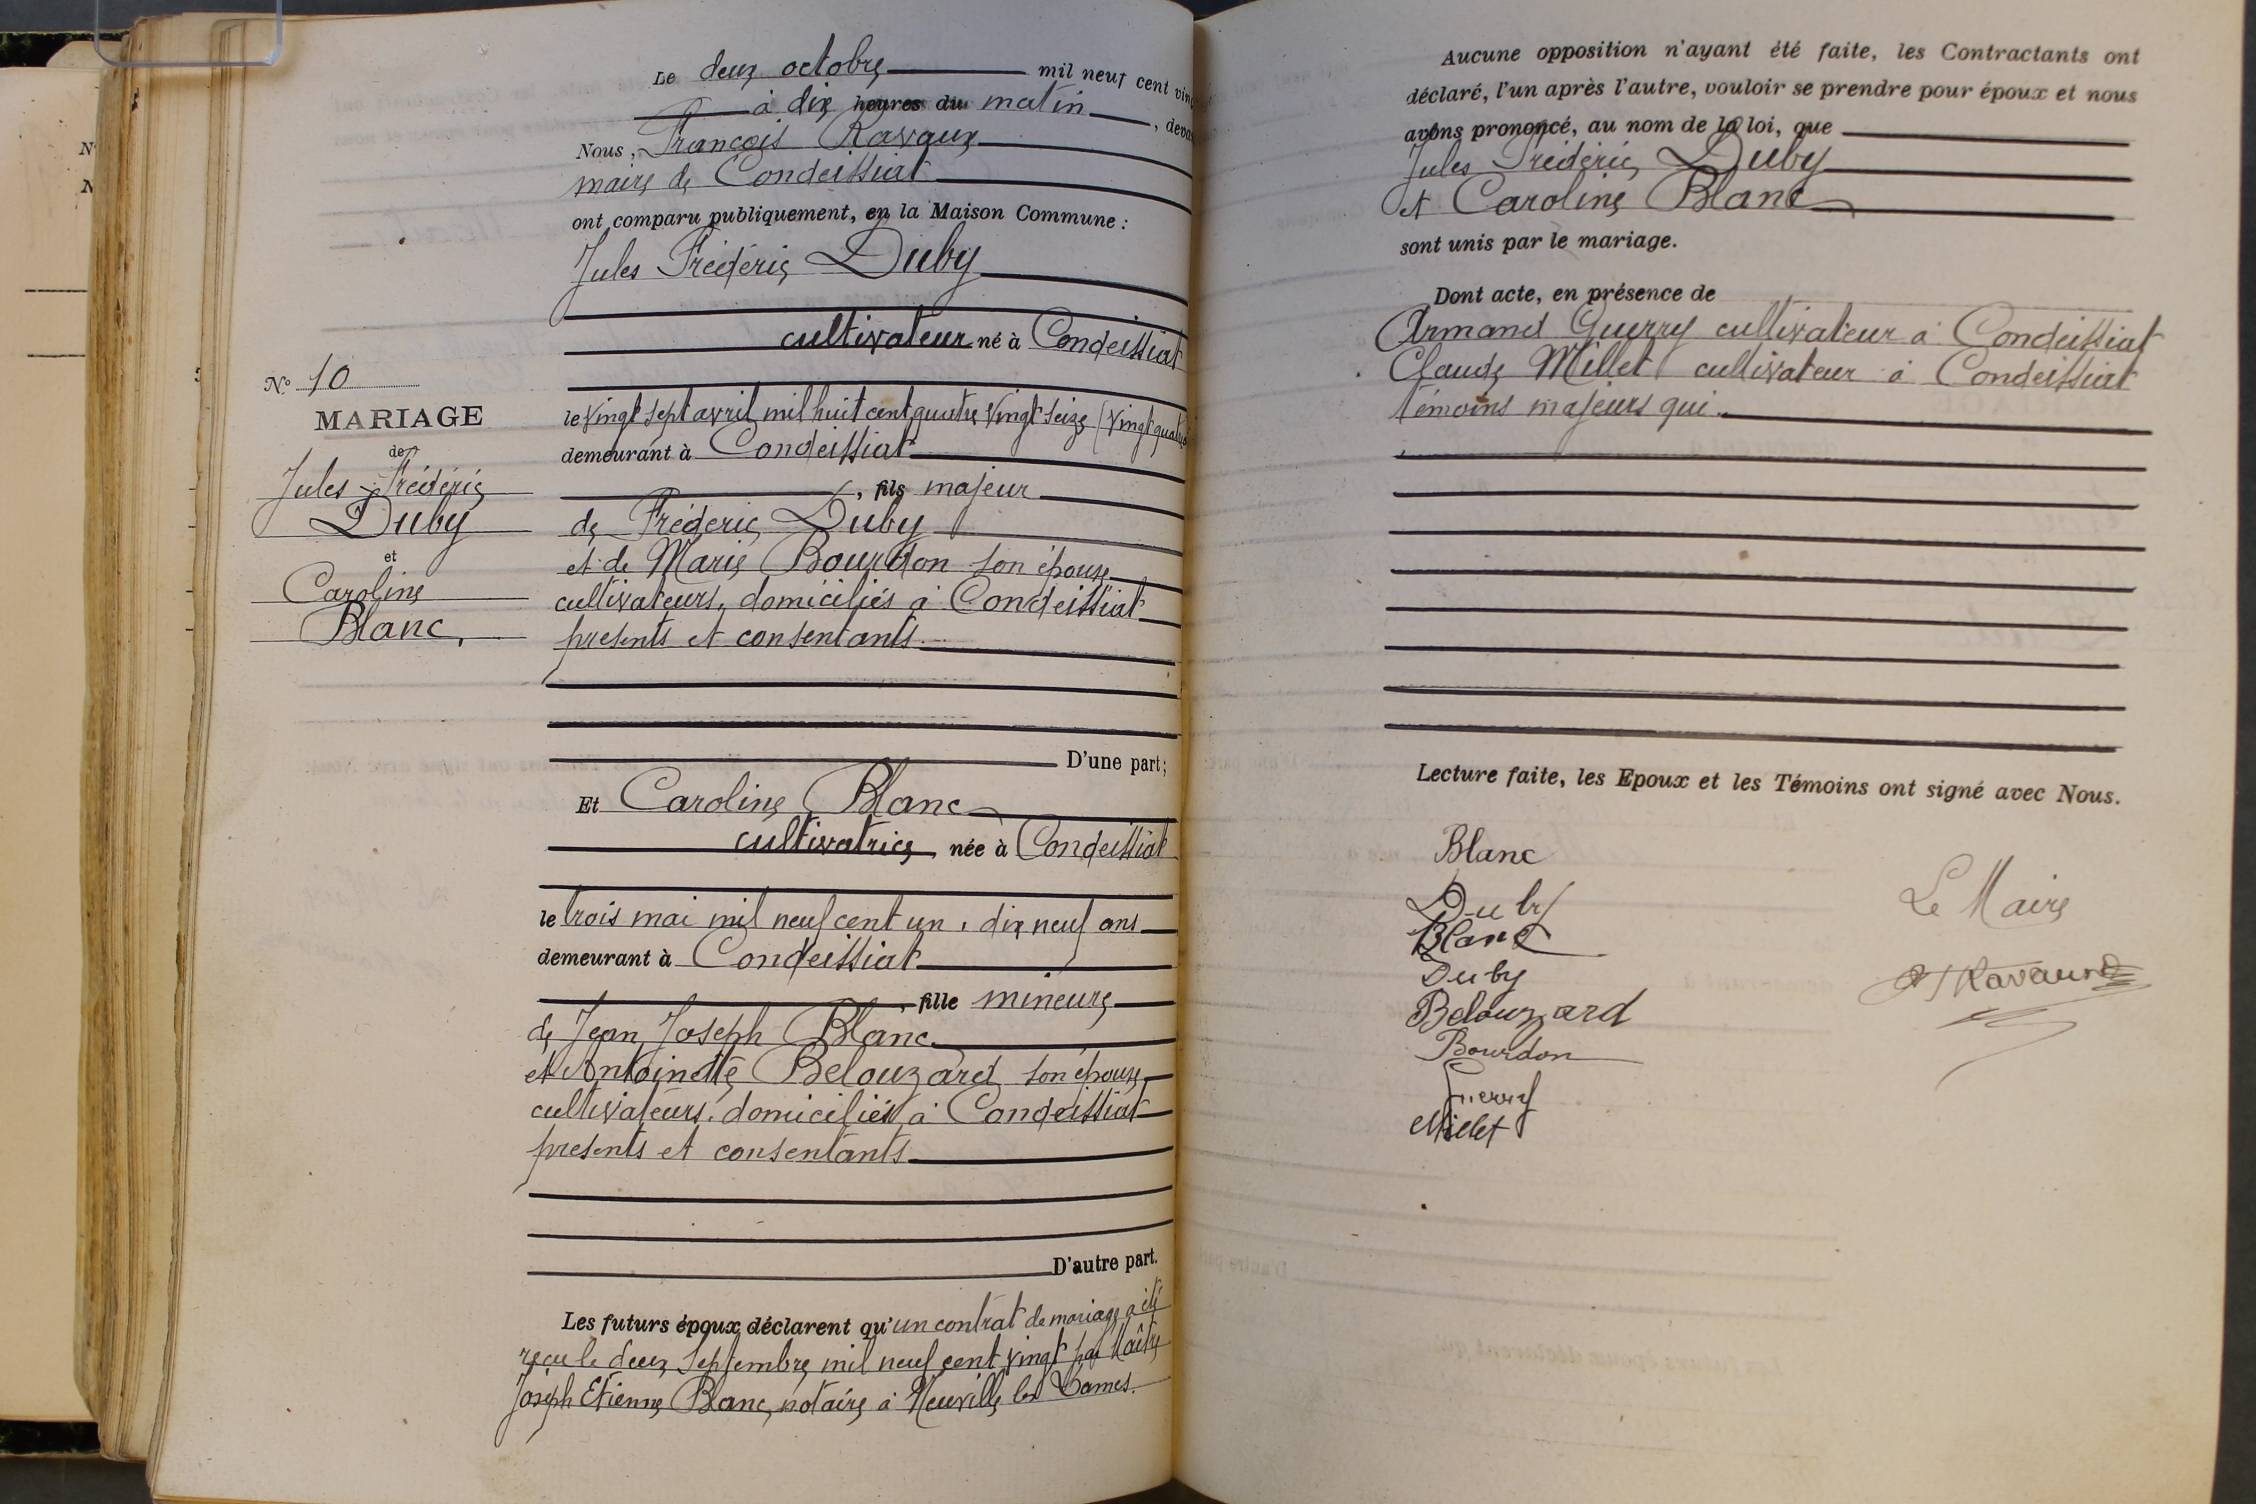 N° 10
MARIAGE
de
Jules Frédéric
Duby
et
Caroline
Blanc.
Le deux octobre mil neuf cent ving
à dix heures du matin, deva
Nous, François Ravaux
maire de Condeissiat
ont comparu publiquement, en la Maison Commune :
Jules Frédéric Duby
cultivateur né à Condeissiat
le vingt sept avril mil huit cent quatre vingt seize (vingt quatre
demeurant à Condeissiat
, fils majeur
de Fréderic Duby
et de Marie Bourdon son épouse
cultivateurs, domiciliés à Condeissiat
presents et consentants.
D'une part;
Et Caroline Blanc
cultivatrice, née à Condeissiat
le trois mai mil neuf cent un, dix neuf ans
demeurant à Condeissiat
, fille mineure
de Jean Joseph Blanc
et Antoinette Belouzard son épouse
cultivateurs, domiciliés à Condeissiat
presents et consentants
D'autre part.
Les futurs époux déclarent qu'un contrat de mariage a été
reçu le deux Septembre mil neuf cent vingt par Maître
Joseph Etienne Blanc, notaire à Neuville les Dames.
Aucune opposition n'ayant été faite, les Contractants ont
déclaré, l'un après l'autre, vouloir se prendre pour époux et nous
avons prononcé, au nom de la loi, que
Jules Frédéric Duby
et Caroline Blanc
sont unis par le mariage.
Dont acte, en présence de
Armand Guerry cultivateur à Condeissiat
Claude Millet cultivateur à Condeissiat
témoins majeurs qui.
Lecture faite, les Epoux et les Témoins ont signé avec Nous.
Blanc
Duby
Blanc
Duby
Belouzard
Bourdon
Guerry
Millet
Le Maire
Ravaux